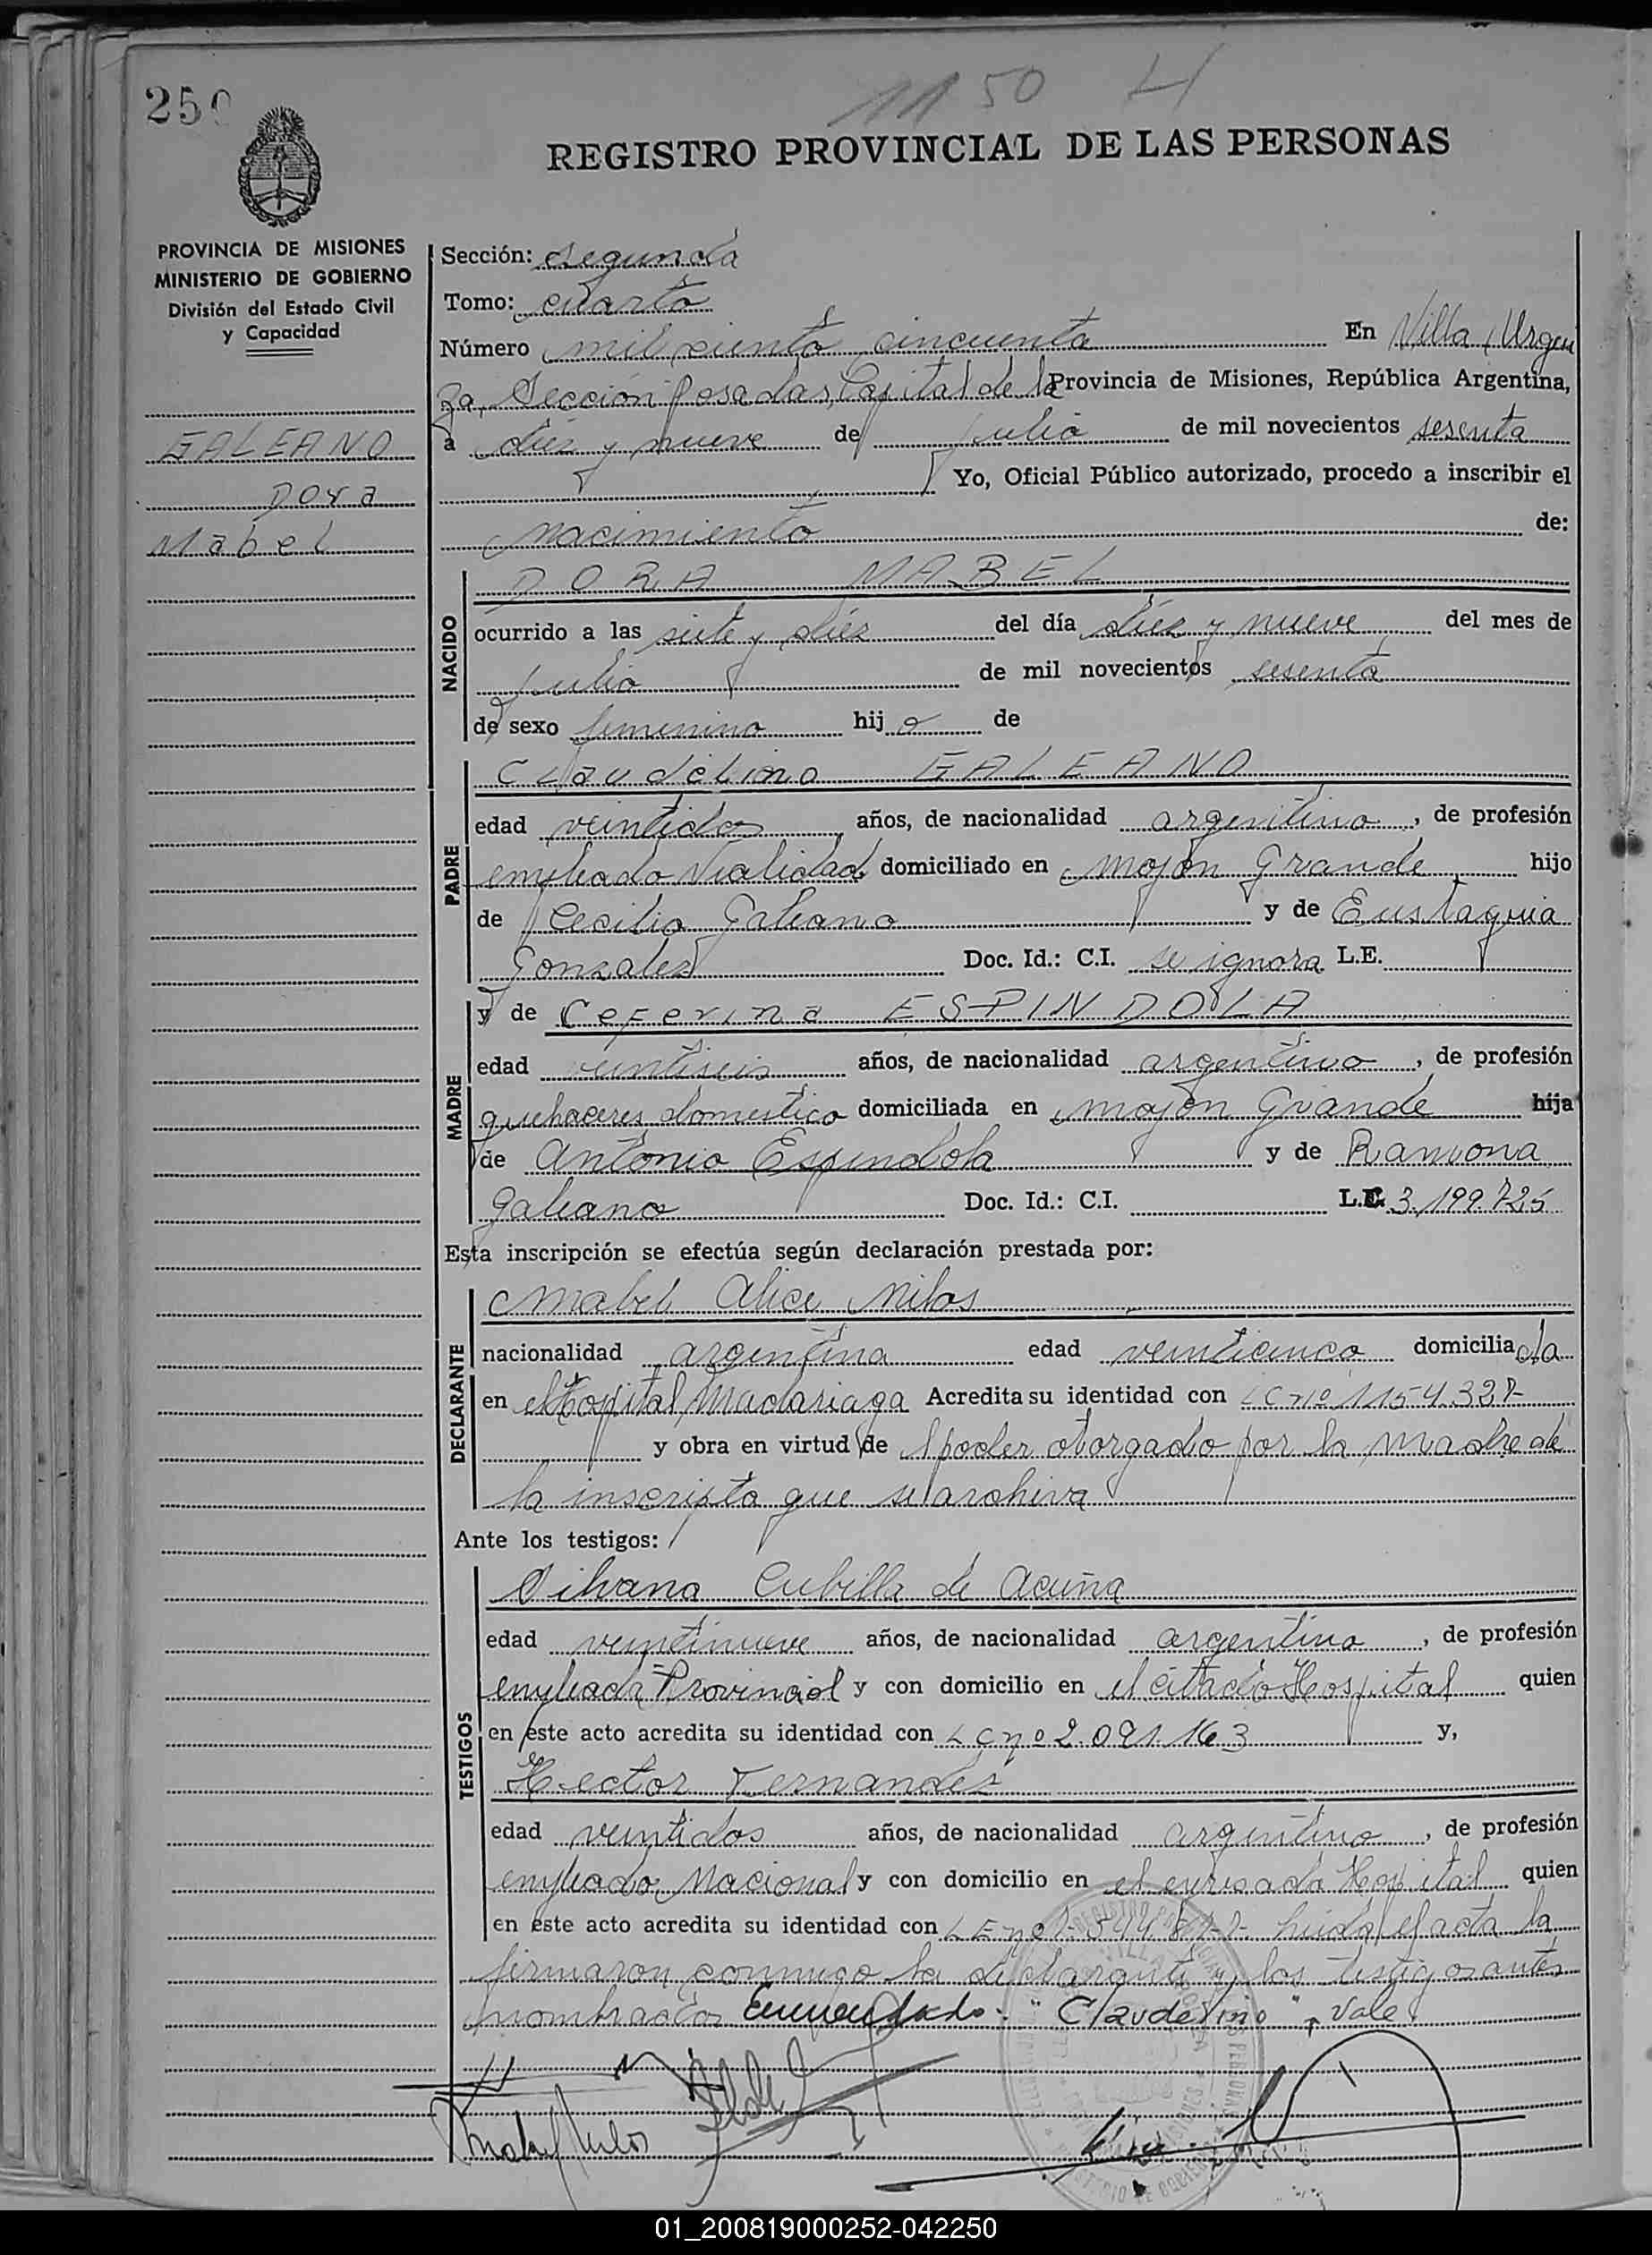 1150 H
250
REGISTRO PROVINCIAL DE LAS PERSONAS
PROVINCIA DE MISIONES
MINISTERIO DE GOBIERNO
División del Estado Civil
y Capacidad
GALEANO
Dora
Mabel
Sección: segunda
Tomo: cuarto
Número mil ciento cincuenta En Villa Urqui
za, Sección Posadas, Capital de la Provincia de Misiones, República Argentina,
a diéz y nueve de julio de mil novecientos sesenta
Yo, Oficial Público autorizado, procedo a inscribir el
nacimiento de:
NACIDO
DORA MABEL
ocurrido a las siete y diéz del día diéz y nueve del mes de
julio de mil novecientos sesenta
de sexo femenino hij a de
PADRE
Claudelino GALEANO
edad veintidos años, de nacionalidad argentino, de profesión
empleado Vialidad domiciliado en Mojón Grande hijo
de Cecilio Galeano y de Eustaquia
Gonzales Doc. Id.: C.I. se ignora L.E.
MADRE
y de Ceferina ESPINDOLA
edad veintiseis años, de nacionalidad argentina, de profesión
quehaceres domestico domiciliada en Mojón Grande hija
de Antonio Espindola y de Ramona
Galeano Doc. Id.: C.I. L.C. 3.199.725
Esta inscripción se efectúa según declaración prestada por:
DECLARANTE
Mabel Alice Milos
nacionalidad argentina edad veinticinco domicilia da
en el Hospital Madariaga Acredita su identidad con LC nº 1154.327-
y obra en virtud de l poder otorgado por la madre de
la inscripta que se archiva
Ante los testigos:
TESTIGOS
Silvana Cubilla de Acuña
edad veintinueve años, de nacionalidad argentina, de profesión
empleada Provincial y con domicilio en el citado Hospital quien
en este acto acredita su identidad con LC nº 2.091.163 y,
Hector Fernandez
edad veintidos años, de nacionalidad argentino, de profesión
empleado Nacional y con domicilio en el expresado Hospital quien
en este acto acredita su identidad con LE nº leída el acta la
firmaron conmigo la declarante y los testigos antes
nombrados Enmendado: "Claudelino", Vale
01_200819000252-042250